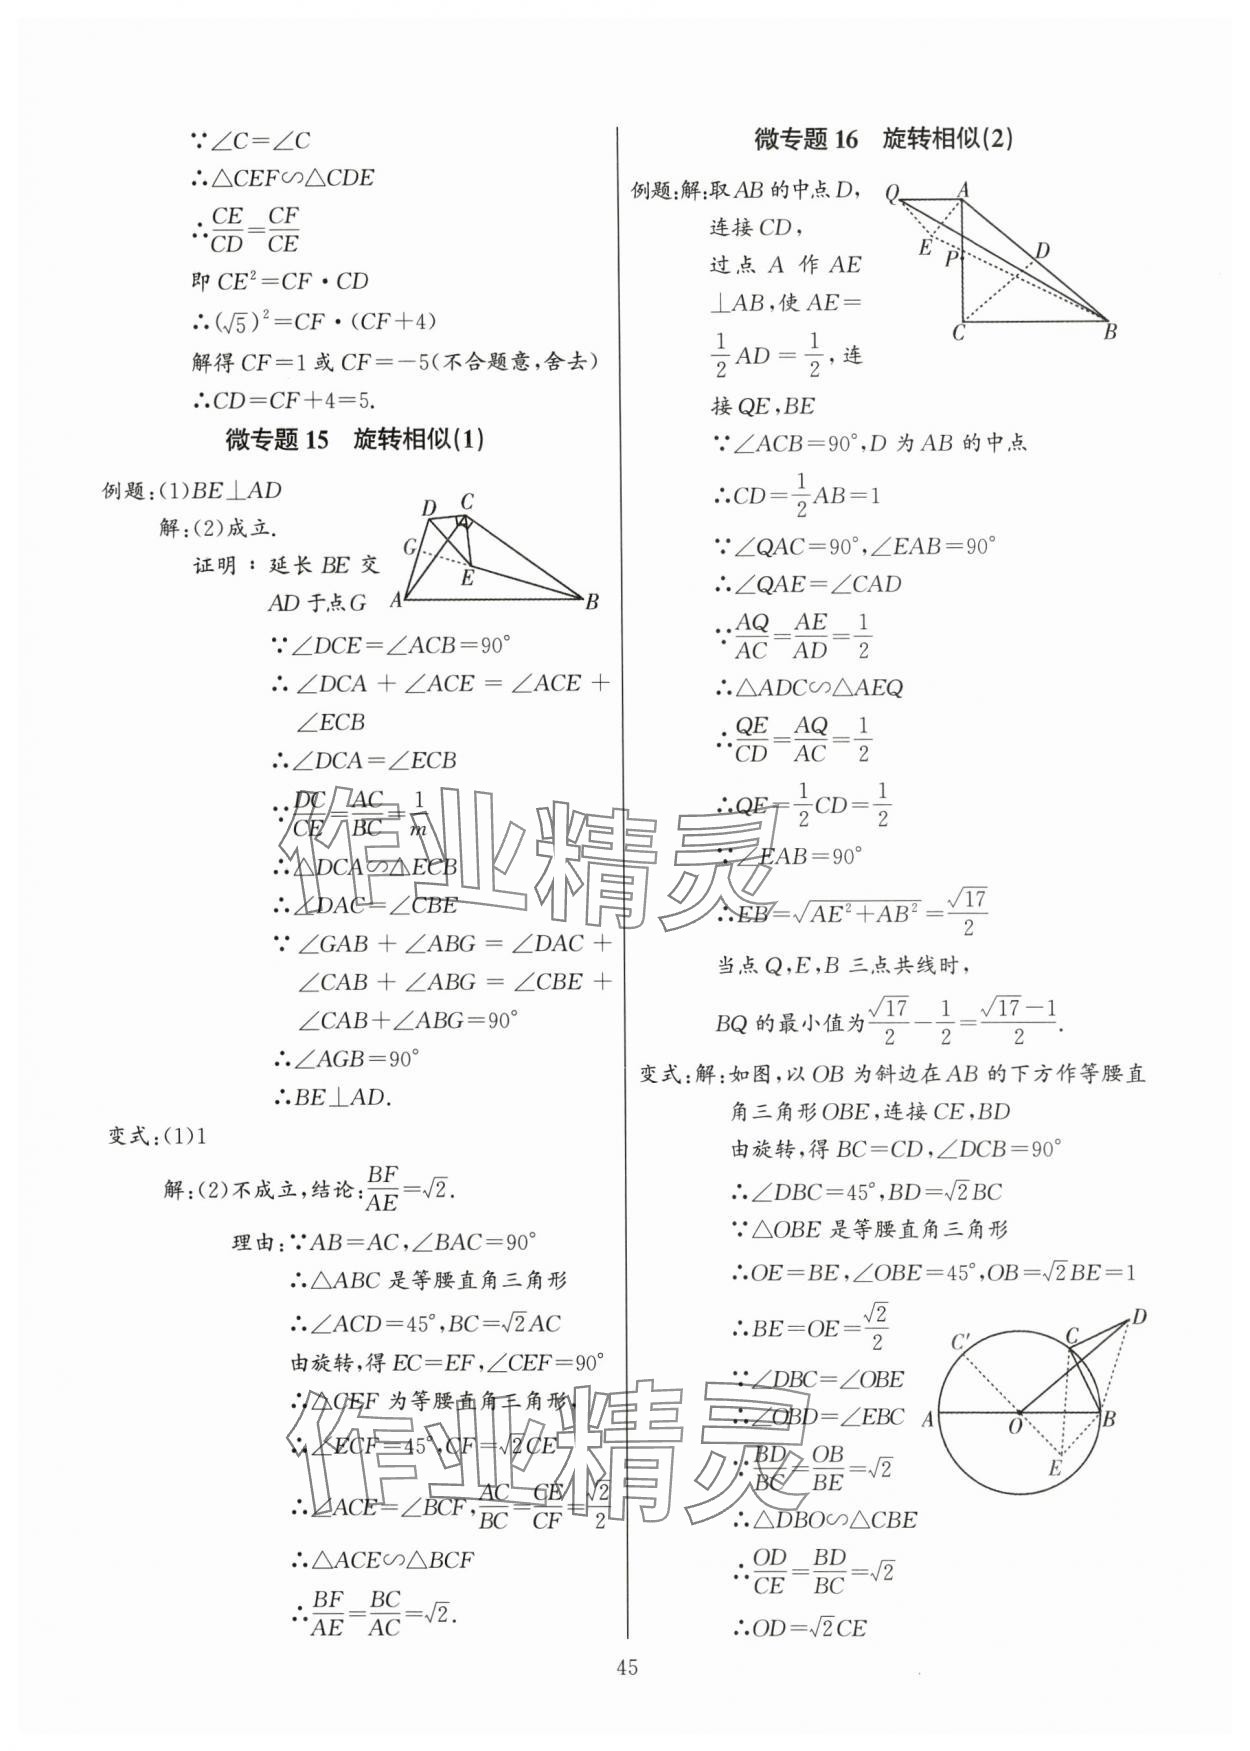 ∵∠C=∠C
∴△CEF∽△CDE
∴CE/CD=CF/CE
即 CE²=CF·CD
∴(√5)²=CF·(CF+4)
解得 CF=1 或 CF=-5(不合题意,舍去)
∴CD=CF+4=5.
微专题 15 旋转相似(1)
例题:(1)BE⊥AD
解:(2)成立.
证明:延长 BE 交
AD 于点 G
D C
G
E
A B
∵∠DCE=∠ACB=90°
∴∠DCA+∠ACE=∠ACE+
∠ECB
∴∠DCA=∠ECB
∵DC/CE=AC/BC=1/m
∴△DCA∽△ECB
∴∠DAC=∠CBE
∵∠GAB+∠ABG=∠DAC+
∠CAB+∠ABG=∠CBE+
∠CAB+∠ABG=90°
∴∠AGB=90°
∴BE⊥AD.
变式:(1)1
解:(2)不成立,结论:BF/AE=√2.
理由:∵AB=AC,∠BAC=90°
∴△ABC 是等腰直角三角形
∴∠ACD=45°,BC=√2AC
由旋转,得 EC=EF,∠CEF=90°
∴△CEF 为等腰直角三角形,
∴∠ECF=45°,CF=√2CE
∴∠ACE=∠BCF,AC/BC=CE/CF=√2/2
∴△ACE∽△BCF
∴BF/AE=BC/AC=√2.
微专题 16 旋转相似(2)
例题:解:取 AB 的中点 D,
连接 CD,
过点 A 作 AE
⊥AB,使 AE=
1/2AD=1/2,连
接 QE,BE
Q A
E
P D
C B
∵∠ACB=90°,D 为 AB 的中点
∴CD=1/2AB=1
∵∠QAC=90°,∠EAB=90°
∴∠QAE=∠CAD
∵AQ/AC=AE/AD=1/2
∴△ADC∽△AEQ
∴QE/CD=AQ/AC=1/2
∴QE=1/2CD=1/2
∵∠EAB=90°
∴EB=√(AE²+AB²)=√17/2
当点 Q,E,B 三点共线时,
BQ 的最小值为√17/2-1/2=(√17-1)/2.
变式:解:如图,以 OB 为斜边在 AB 的下方作等腰直
角三角形 OBE,连接 CE,BD
由旋转,得 BC=CD,∠DCB=90°
∴∠DBC=45°,BD=√2BC
∵△OBE 是等腰直角三角形
∴OE=BE,∠OBE=45°,OB=√2BE=1
∴BE=OE=√2/2
∵∠DBC=∠OBE
∴∠OBD=∠EBC
∵BD/BC=OB/BE=√2
∴△DBO∽△CBE
∴OD/CE=BD/BC=√2
∴OD=√2CE
D
C′ C
A O B
E
作业精灵
作业精灵
45